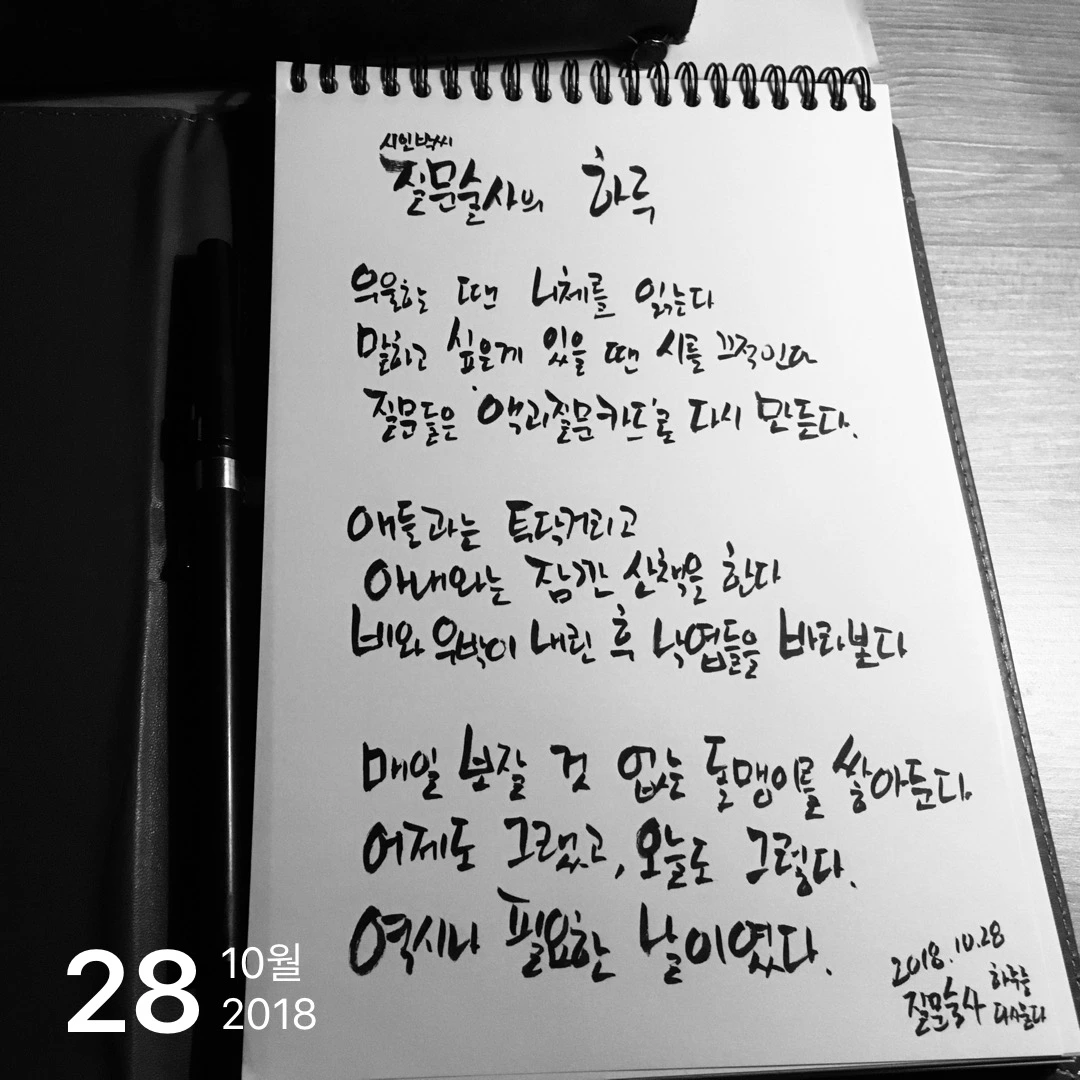 시인박씨
질문술사의 하루
우울하는 땐 니체를 읽는다
말하고 싶은게 있을 땐 시를 끄적인다
질문들은 '액괴질문카드'로 다시 만든다.
애들과는 투닥거리고
아내와는 잠깐 산책을 한다
비와 우박이 내린 후 낙엽들을 바라본다
매일 보잘 것 없는 돌맹이를 쌓아둔다.
어제도 그랬고, 오늘도 그렇다.
역시나 필요한 날이였다.
2018.10.28
질문술사
하루를
다시읽다
28 10월
2018